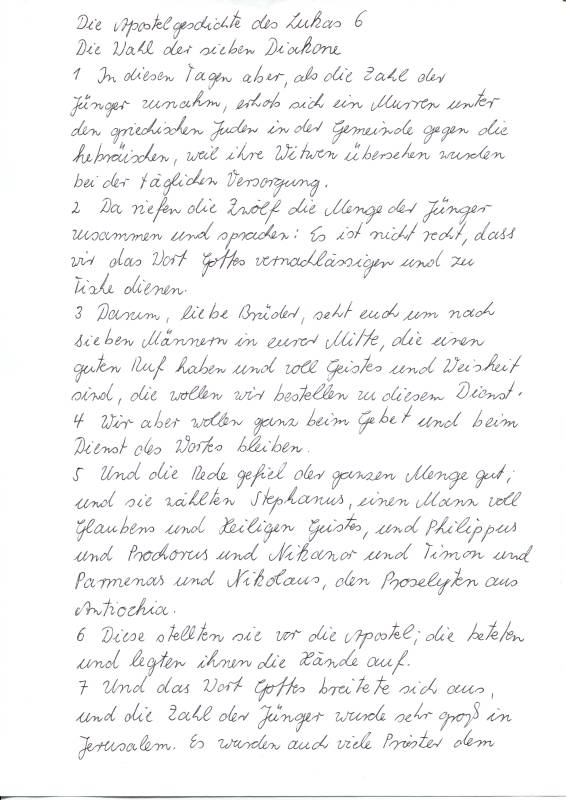 Die Apostelgeschichte des Lukas 6
Die Wahl der sieben Diakone
1 In diesen Tagen aber, als die Zahl der
Jünger zunahm, erhob sich ein Murren unter
den griechischen Juden in der Gemeinde gegen die
hebräischen, weil ihre Witwen übersehen wurden
bei der täglichen Versorgung.
2 Da riefen die Zwölf die Menge der Jünger
zusammen und sprachen: Es ist nicht recht, dass
wir das Wort Gottes vernachlässigen und zu
Tische dienen.
3 Darum, liebe Brüder, seht euch um nach
sieben Männern in eurer Mitte, die einen
guten Ruf haben und voll Geistes und Weisheit
sind, die wollen wir bestellen zu diesem Dienst.
4 Wir aber wollen ganz beim Gebet und beim
Dienst des Wortes bleiben.
5 Und die Rede gefiel der ganzen Menge gut;
und sie wählten Stephanus, einen Mann voll
Glaubens und Heiligen Geistes, und Philippus
und Prochorus und Nikanor und Timon und
Parmenas und Nikolaus, den Proselyten aus
Antiochia.
6 Diese stellten sie vor die Apostel; die beteten
und legten ihnen die Hände auf.
7 Und das Wort Gottes breitete sich aus,
und die Zahl der Jünger wurde sehr groß in
Jerusalem. Es wurden auch viele Priester dem